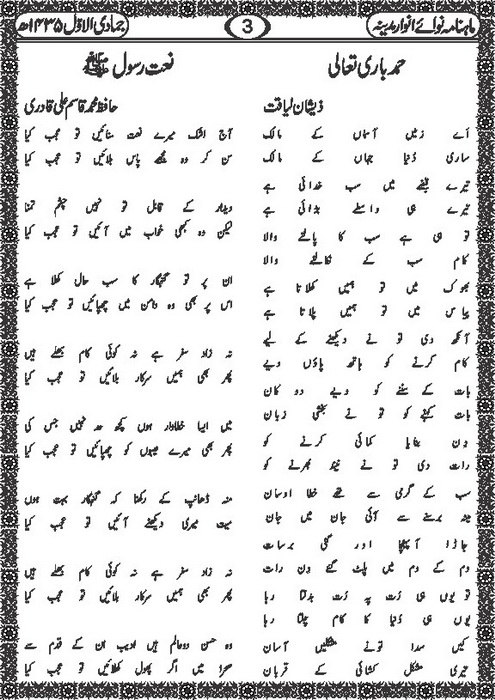 ماہنامہ نوائے انوار مدینہ
3
جمادی الاوّل ۱۴۳۵ھ
حمد باری تعالیٰ
ذیشان لیاقت
اے زمیں آسماں کے مالک
ساری دُنیا جہاں کے مالک
تیرے قبضے میں سب خدائی ہے
تیرے ہی واسطے بڑائی ہے
تو ہی ہے سب کا پالنے والا
کام سب کے نکالنے والا
بھوک میں تو ہمیں کھلاتا ہے
پیاس میں تو ہمیں پلاتا ہے
آنکھ دی تو نے دیکھنے کے لیے
کام کرنے کو ہاتھ پاؤں دیے
بات کے سننے کو دیے دو کان
بات کہنے کو تو نے بخشی زبان
دِن بنایا کمائی کرنے کو
رات دی تو نے نیند بھرنے کو
سب کے گرمی سے تھے خطا اوسان
مینہ برسنے سے آئی جان میں جان
جاڑا آ پہنچا اور گئی برسات
دم کے دم میں پلٹ گئے دِن رات
تو یوں ہی رُت پہ رُت بدلتا رہا
یوں ہی دُنیا کا کام چلتا رہا
کیں سدا تونے مشکلیں آسان
تیری مشکل کشائی کے قربان
نعت رسول ﷺ
حافظ محمد قاسم علی قادری
آج اشک میرے نعت سنائیں تو عجب کیا
سن کر وہ مجھے پاس بلائیں تو عجب کیا
دیدار کے قابل تو نہیں چشم تمنا
لیکن وہ کبھی خواب میں آئیں تو عجب کیا
ان پر تو گنہگار کا سب حال کھلا ہے
اس پر بھی وہ دامن میں چھپائیں تو عجب کیا
نہ زاد سفر ہے نہ کوئی کام بھلے ہیں
پھر بھی ہمیں سرکار بلائیں تو عجب کیا
میں ایسا خطاوار ہوں کچھ حد نہیں جس کی
پھر بھی میرے عیبوں کو چھپائیں تو عجب کیا
منہ ڈھانپ کے رکھنا کہ گنہگار بہت ہوں
میت میری دیکھنے آئیں تو عجب کیا
نہ زاد سفر ہے نہ کوئی کام بھلے ہیں
پھر بھی ہمیں سرکار بلائیں تو عجب کیا
وہ حسن دوعالم ہیں ادیب ان کے قدم سے
صحرا میں اگر پھول کھلائیں تو عجب کیا